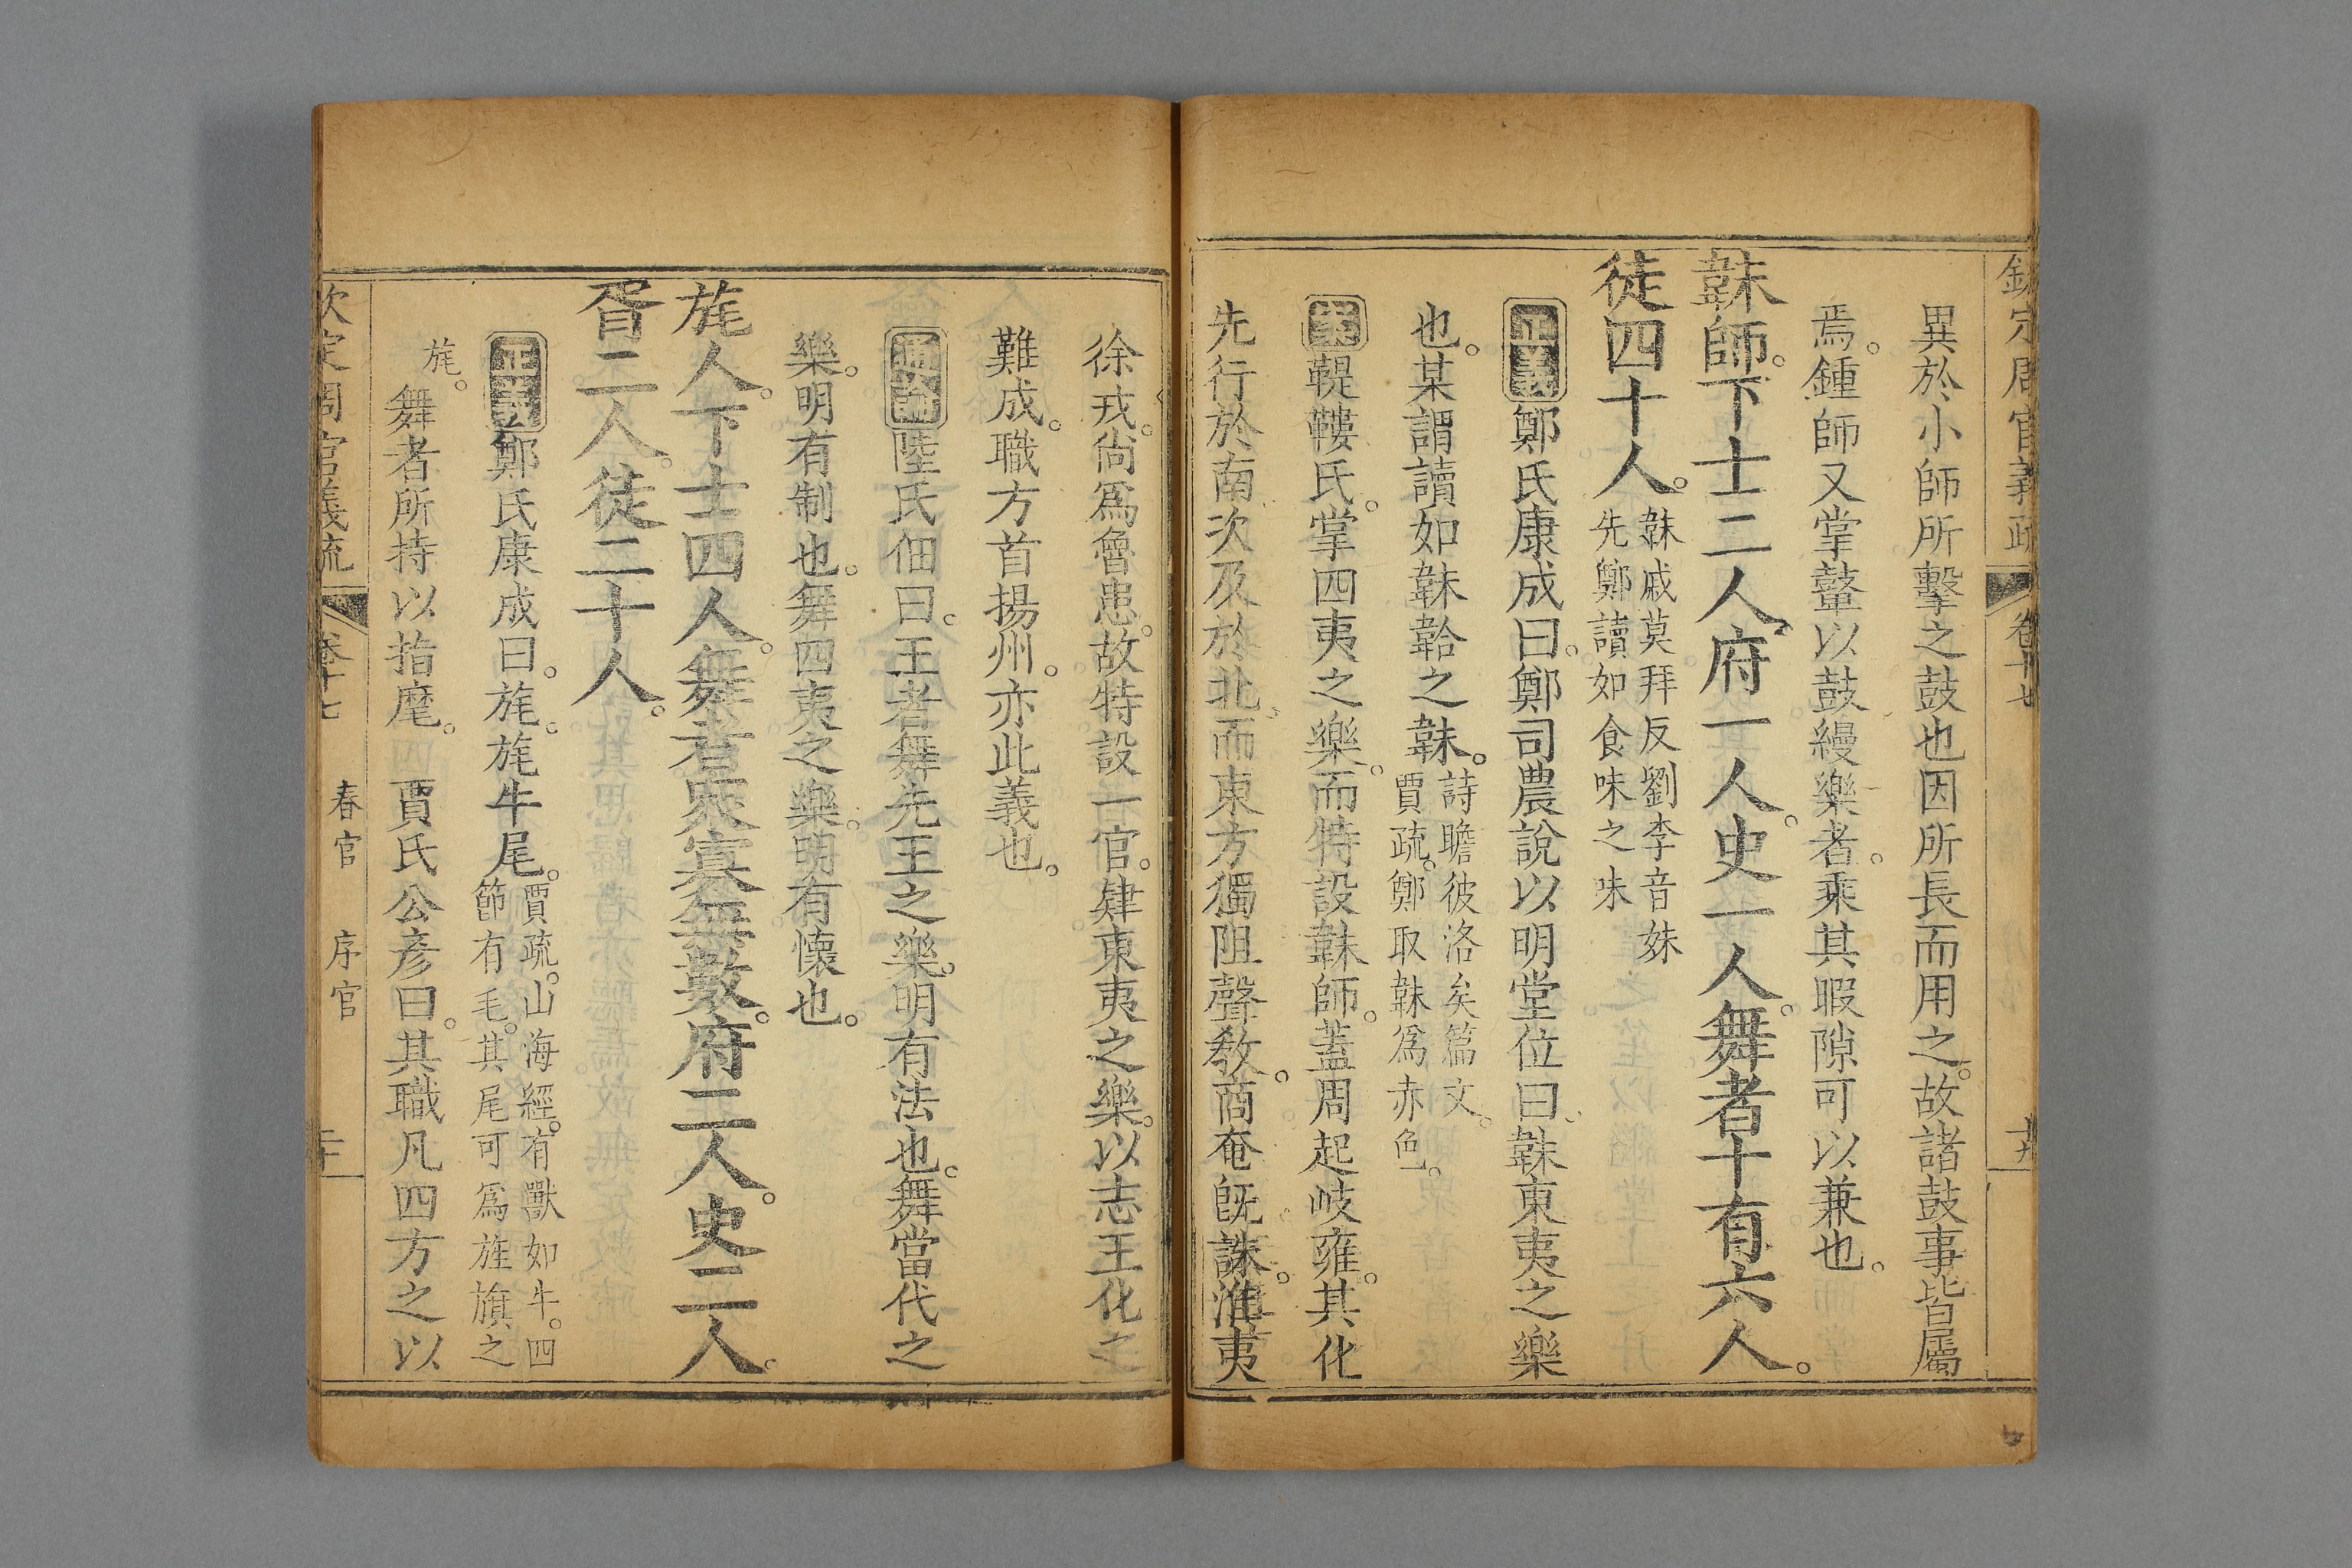 欽定周官義疏 卷十七 十九
異於小師所擊之鼓也因所長而用之。故諸鼓事皆屬
焉。鍾師又掌鼜以鼓縵樂者。乘其暇隙可以兼也。
韎師。下士二人。府一人。史一人。舞者十有六人。
徒四十人。韎戚莫拜反劉李音妹
先鄭讀如食味之味
正義鄭氏康成曰。鄭司農說以明堂位曰。韎東夷之樂
也。某謂讀如韎韐之韎。詩瞻彼洛矣篇文。
賈疏。鄭取韎爲赤色。
案鞮鞻氏。掌四夷之樂。而特設韎師。蓋周起岐雍。其化
先行於南次及於北。而東方獨阻聲教。商奄旣誅。淮夷
徐戎。尙爲魯患。故特設一官。肄東夷之樂。以志王化之
難成。職方首揚州。亦此義也。
通論陸氏佃曰。王者舞先王之樂。明有法也。舞當代之
樂。明有制也。舞四夷之樂。明有懷也。
旄人。下士四人。舞者眾寡無數。府二人。史二人。
胥二人。徒二十人。
正義鄭氏康成曰。旄。旄牛尾。賈疏。山海經。有獸如牛。四
節有毛。其尾可爲旌旗之
旄。舞者所持以指麾。賈氏公彥曰。其職凡四方之以
欽定周官義疏 卷十七 春官 序官 二十